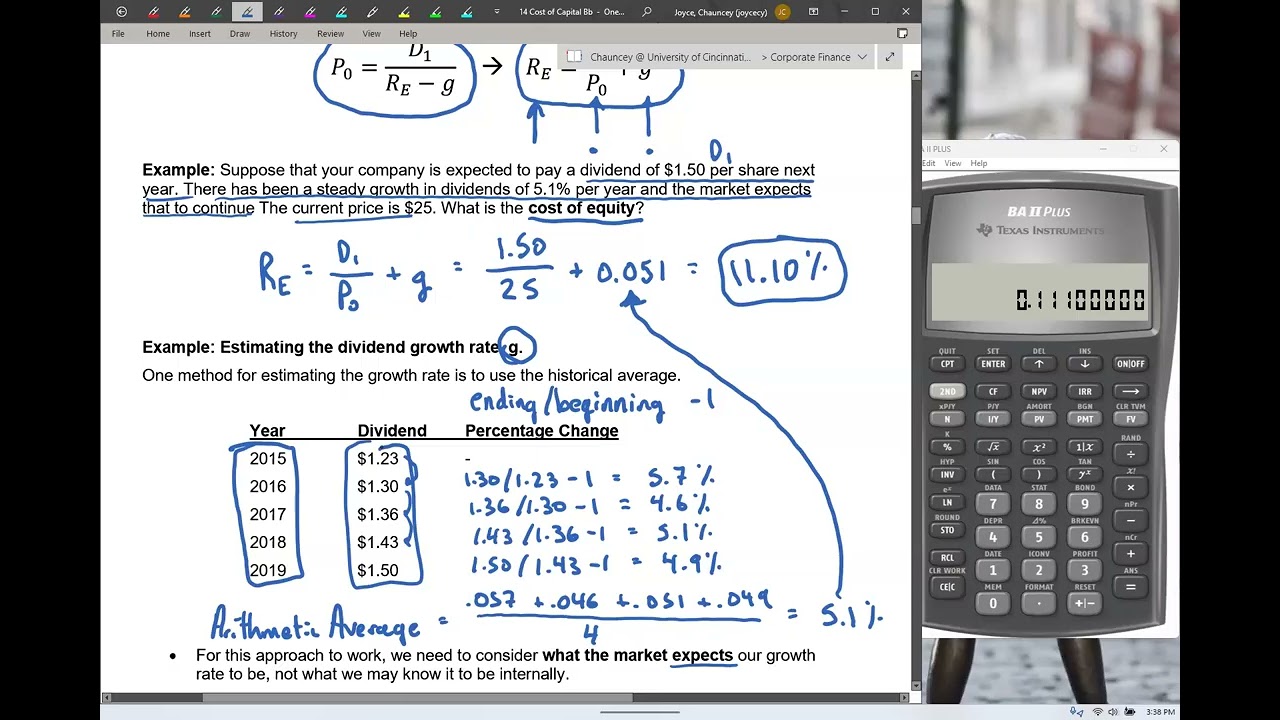 14 Cost of Capital Bb - One...
Joyce, Chauncey (joycecy)
JC
File Home Insert Draw History Review View Help
Chauncey @ University of Cincinnati... > Corporate Finance
P₀ = D₁ / (R_E − g) → R_E = D₁ / P₀ + g
D₁
Example: Suppose that your company is expected to pay a dividend of $1.50 per share next
year. There has been a steady growth in dividends of 5.1% per year and the market expects
that to continue The current price is $25. What is the cost of equity?
R_E = D₁ / P₀ + g = 1.50 / 25 + 0.051 = 11.10%
Example: Estimating the dividend growth rate, g.
One method for estimating the growth rate is to use the historical average.
ending/beginning -1
Year Dividend Percentage Change
2015 $1.23 -
2016 $1.30 1.30/1.23 - 1 = 5.7%
2017 $1.36 1.36/1.30 - 1 = 4.6%
2018 $1.43 1.43/1.36 - 1 = 5.1%
2019 $1.50 1.50/1.43 - 1 = 4.9%
Arithmetic Average = .057 + .046 + .051 + .049 / 4 = 5.1%
• For this approach to work, we need to consider what the market expects our growth
rate to be, not what we may know it to be internally.
A II PLUS
Edit View Help
BA II PLUS
TEXAS INSTRUMENTS
0.11100000
QUIT SET DEL INS
CPT ENTER ↑ ↓ ON|OFF
2ND CF NPV IRR →
xP/Y P/Y AMORT BGN CLR TVM
N I/Y PV PMT FV
K RAND
% √x x² 1|X ÷
HYP SIN COS TAN x!
INV ( ) yˣ ×
eˣ DATA STAT BOND nPr
LN 7 8 9 −
ROUND DEPR Δ% BRKEVN nCr
STO 4 5 6 +
DATE ICONV PROFIT ANS
RCL 1 2 3 =
CLR WORK MEM FORMAT RESET
CE|C 0 . +|−
3:38 PM